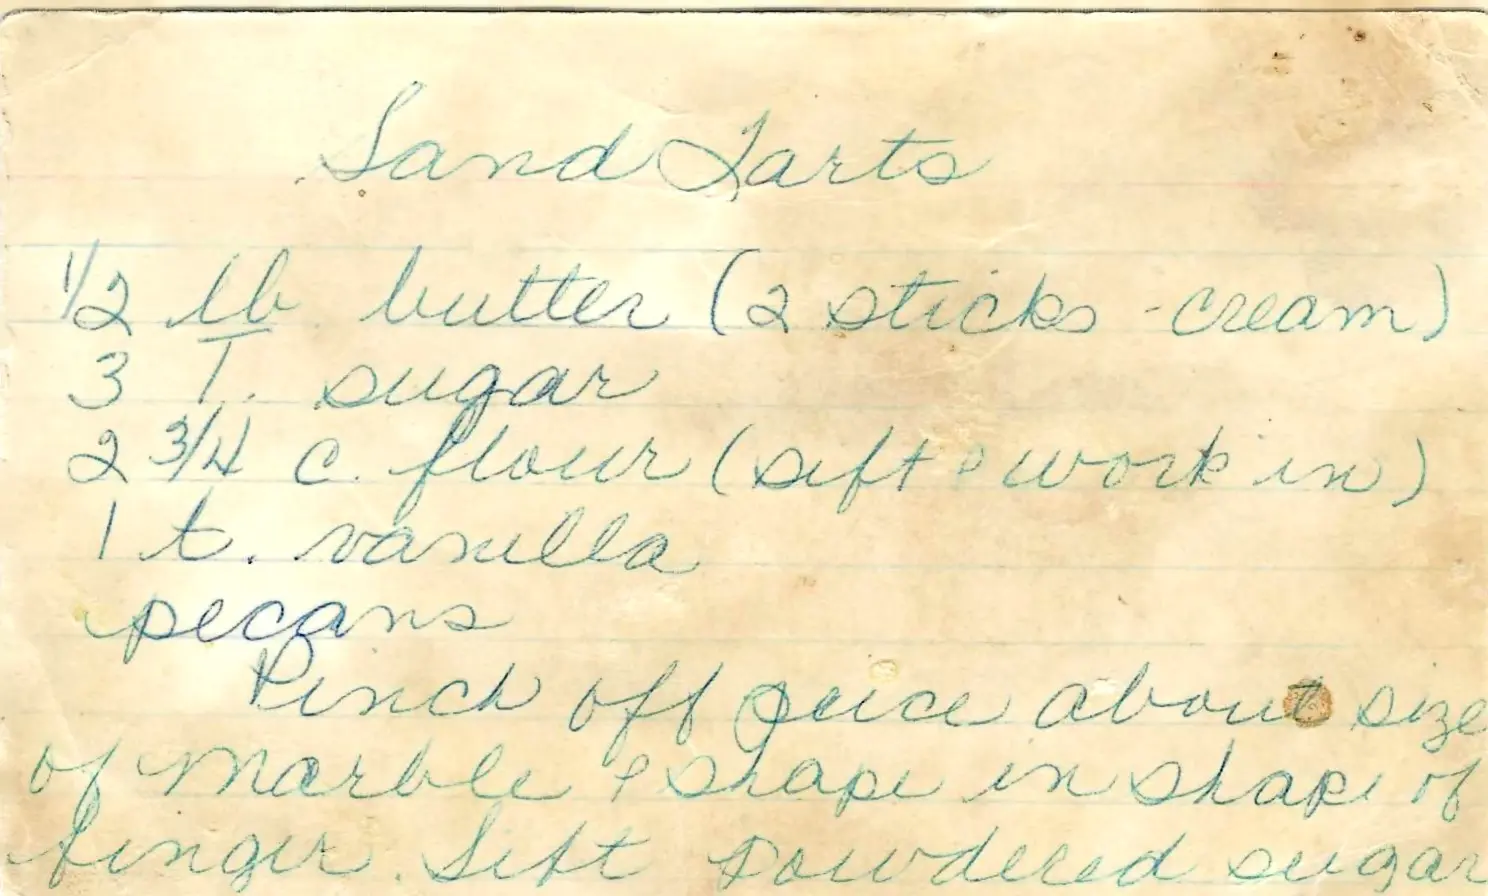 Sand Tarts
1/2 lb butter (2 sticks - cream)
3 T. sugar
2 3/4 c. flour (sift & work in)
1 t. vanilla
pecans
Pinch off peice about size
of marble & shape in shape of
finger. Sift powdered sugar